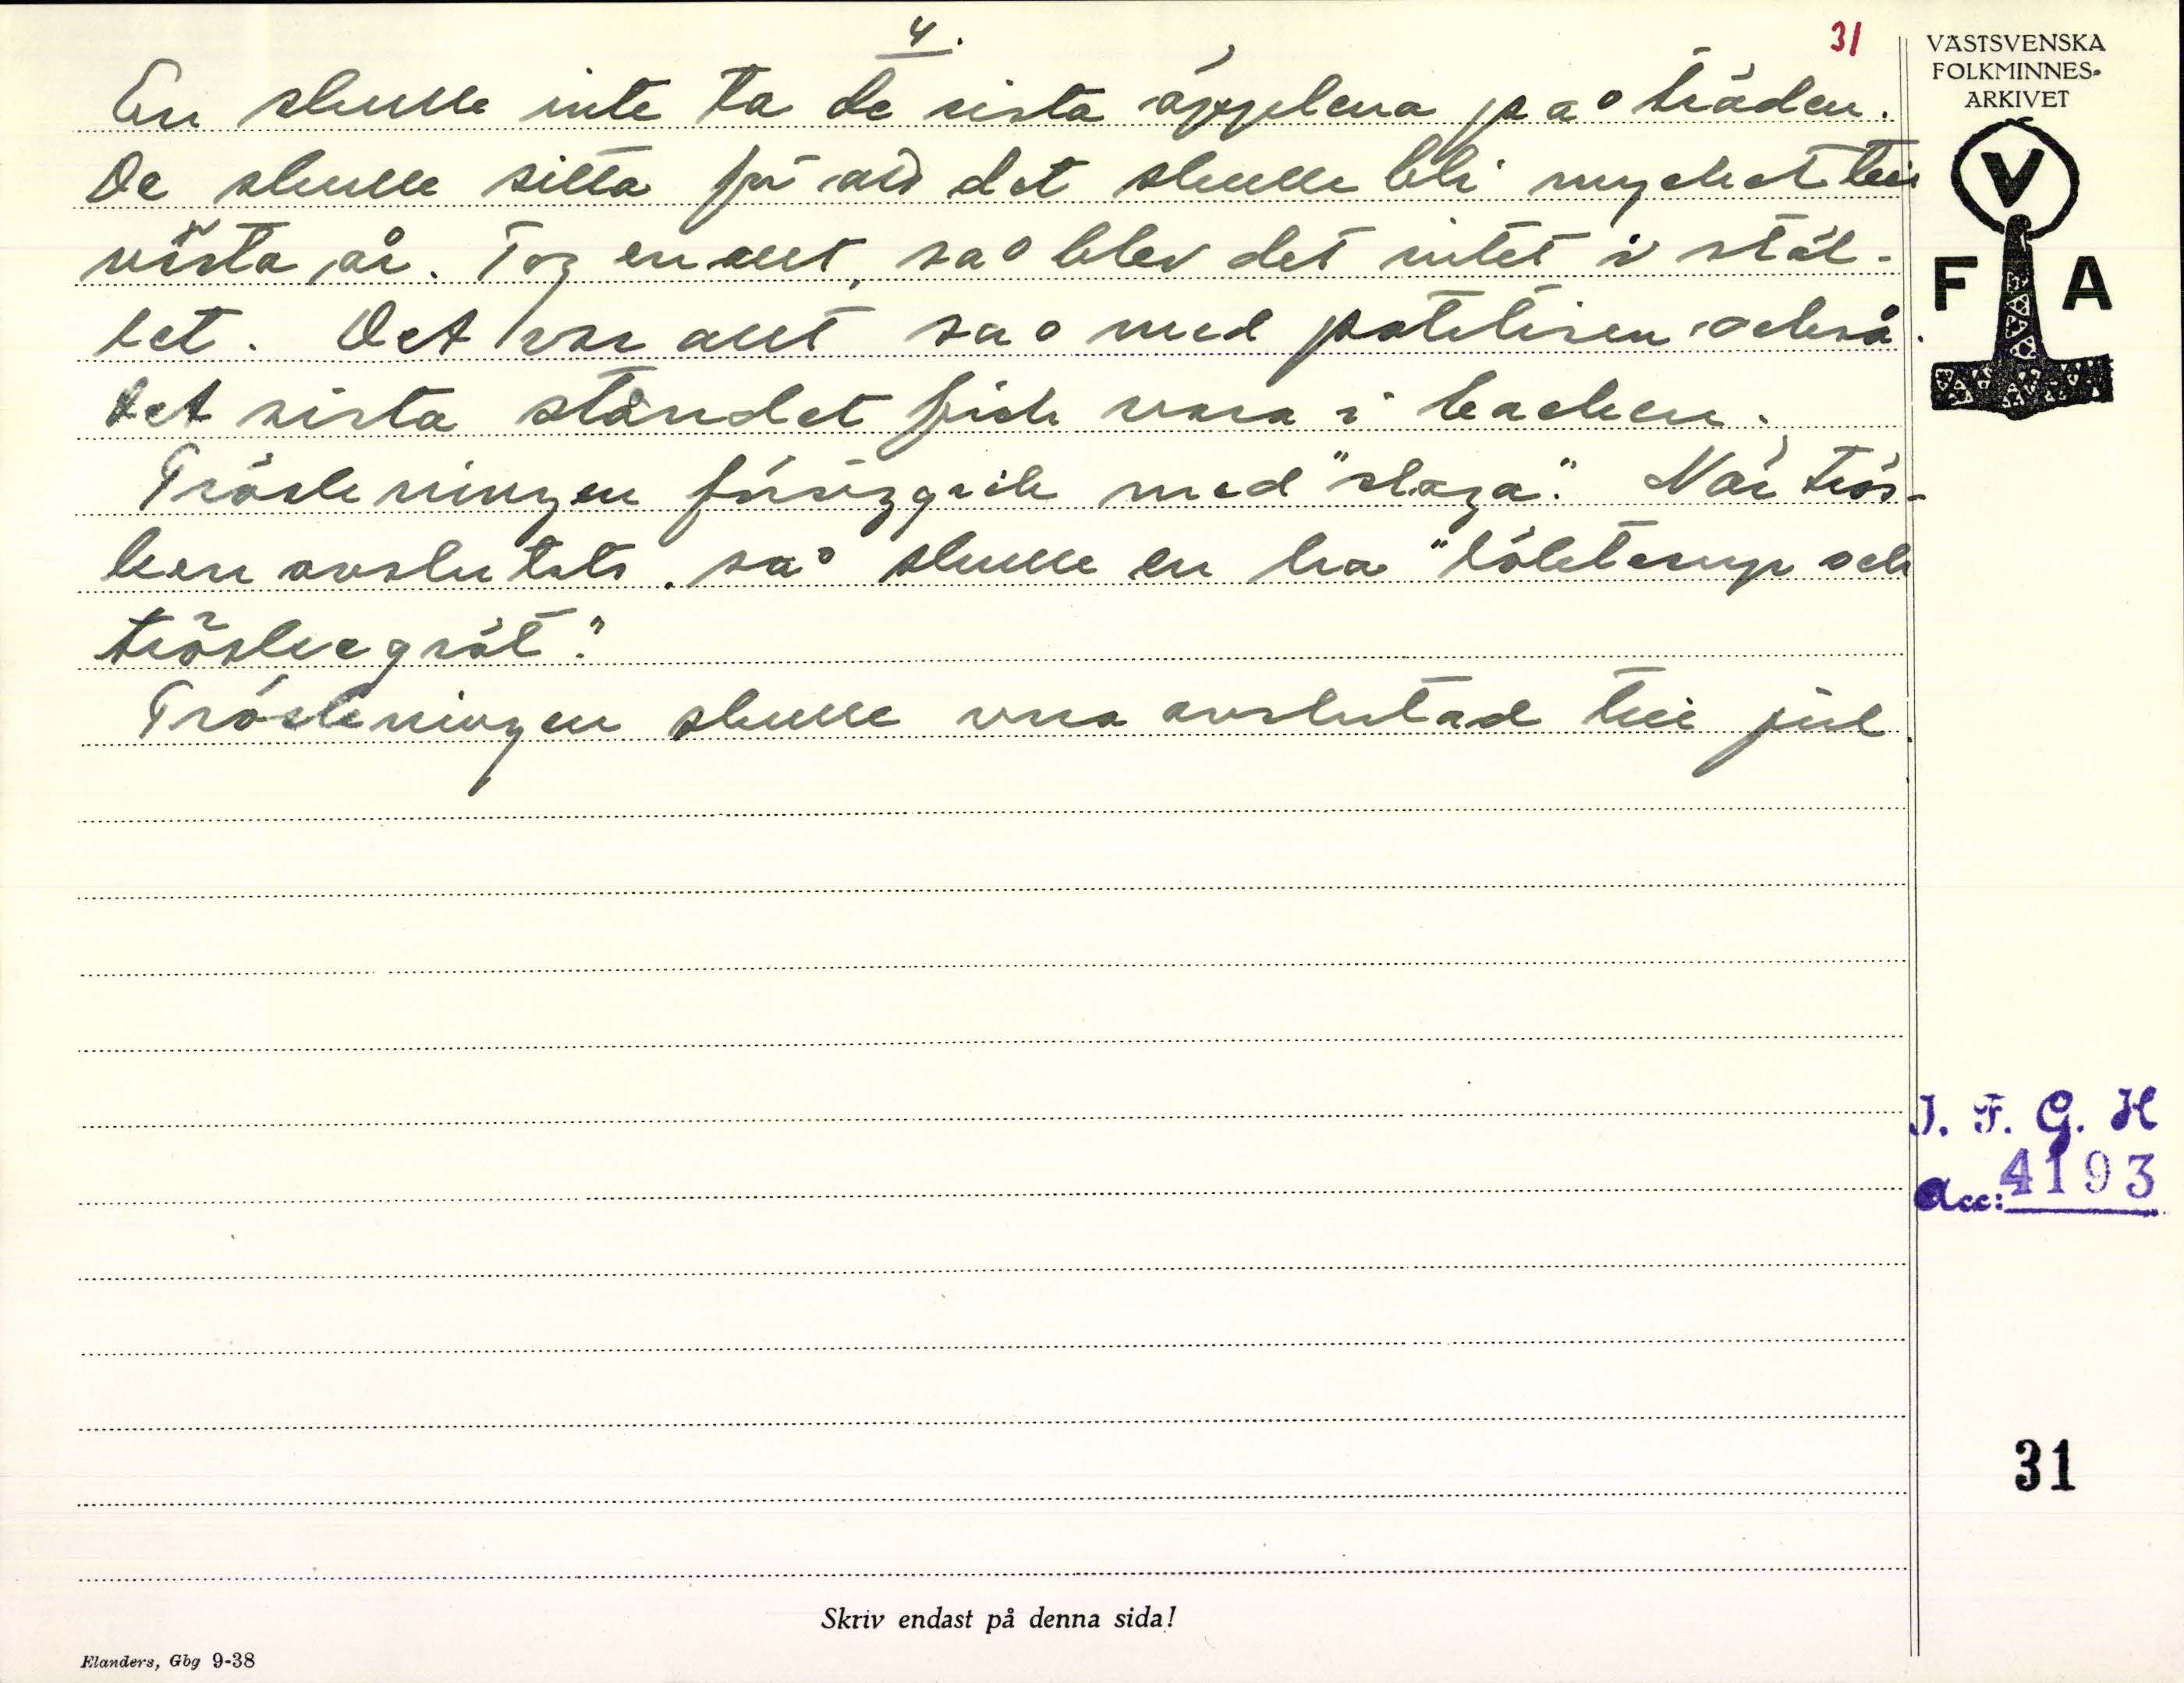 4.
31
En skulle inte ta de sista äpplena på träden.
De skulle sitta för att det skulle bli mycket till
nästa år. Tog en allt, så blev det intet i stäl-
let. Det var allt så med potatisen också.
Det sista ståndet fick vara i backen.
Tröskningen försiggick med "slaga". När trös-
ken avslutats, så skulle en ha "
tröskegröt."
Tröskningen skulle vara avslutad till jul.
VÄSTSVENSKA
FOLKMINNES-
ARKIVET
V
F A
I. F. G. H
Acc: 4193
31
Skriv endast på denna sida!
Elanders, Gbg 9-38